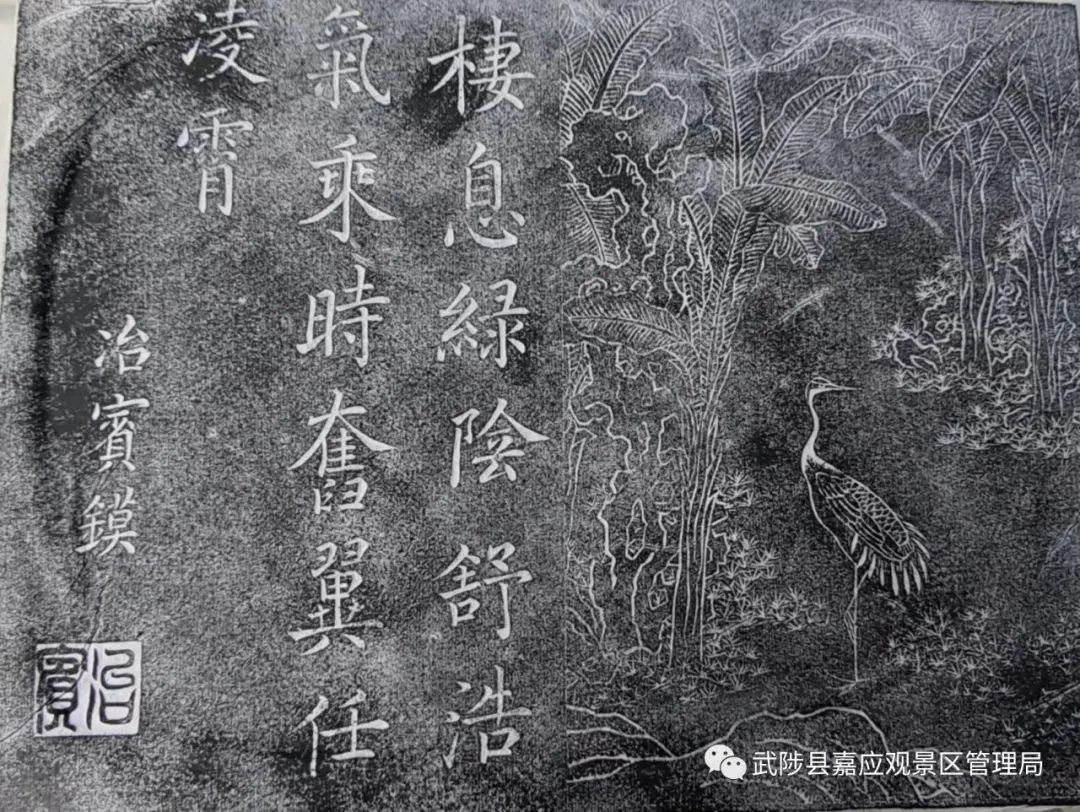 棲息緑陰舒浩
氣乘時奮翼任
凌霄
冶賓鏌
冶賓
武陟县嘉应观景区管理局